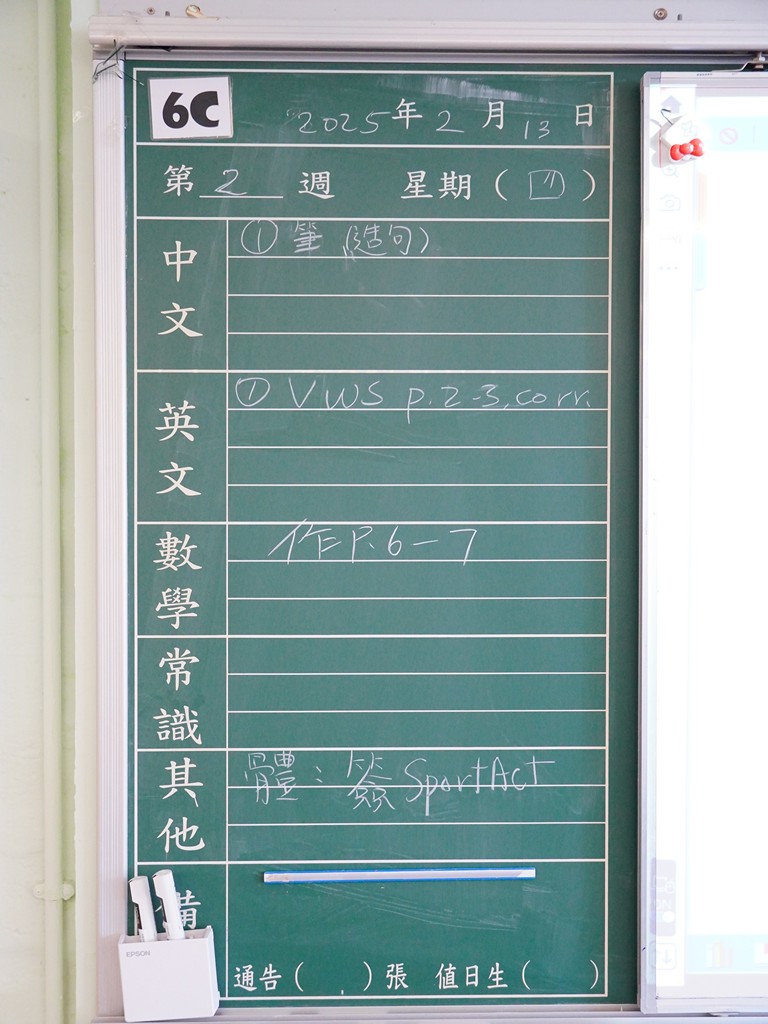 6C
2025年2月13日
第2週 星期(四)
中文
① 筆 (造句)
英文
① VWS p.2-3. corr.
數學
作P.6-7
常識
其他
體:簽SportAct
備
通告( )張 值日生( )
EPSON